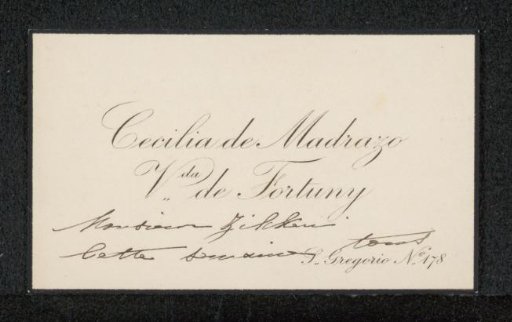 Cecilia de Madrazo
Vda de Fortuny
Monsieur Zilken
Cette semaine tous
S. Gregorio No. 178